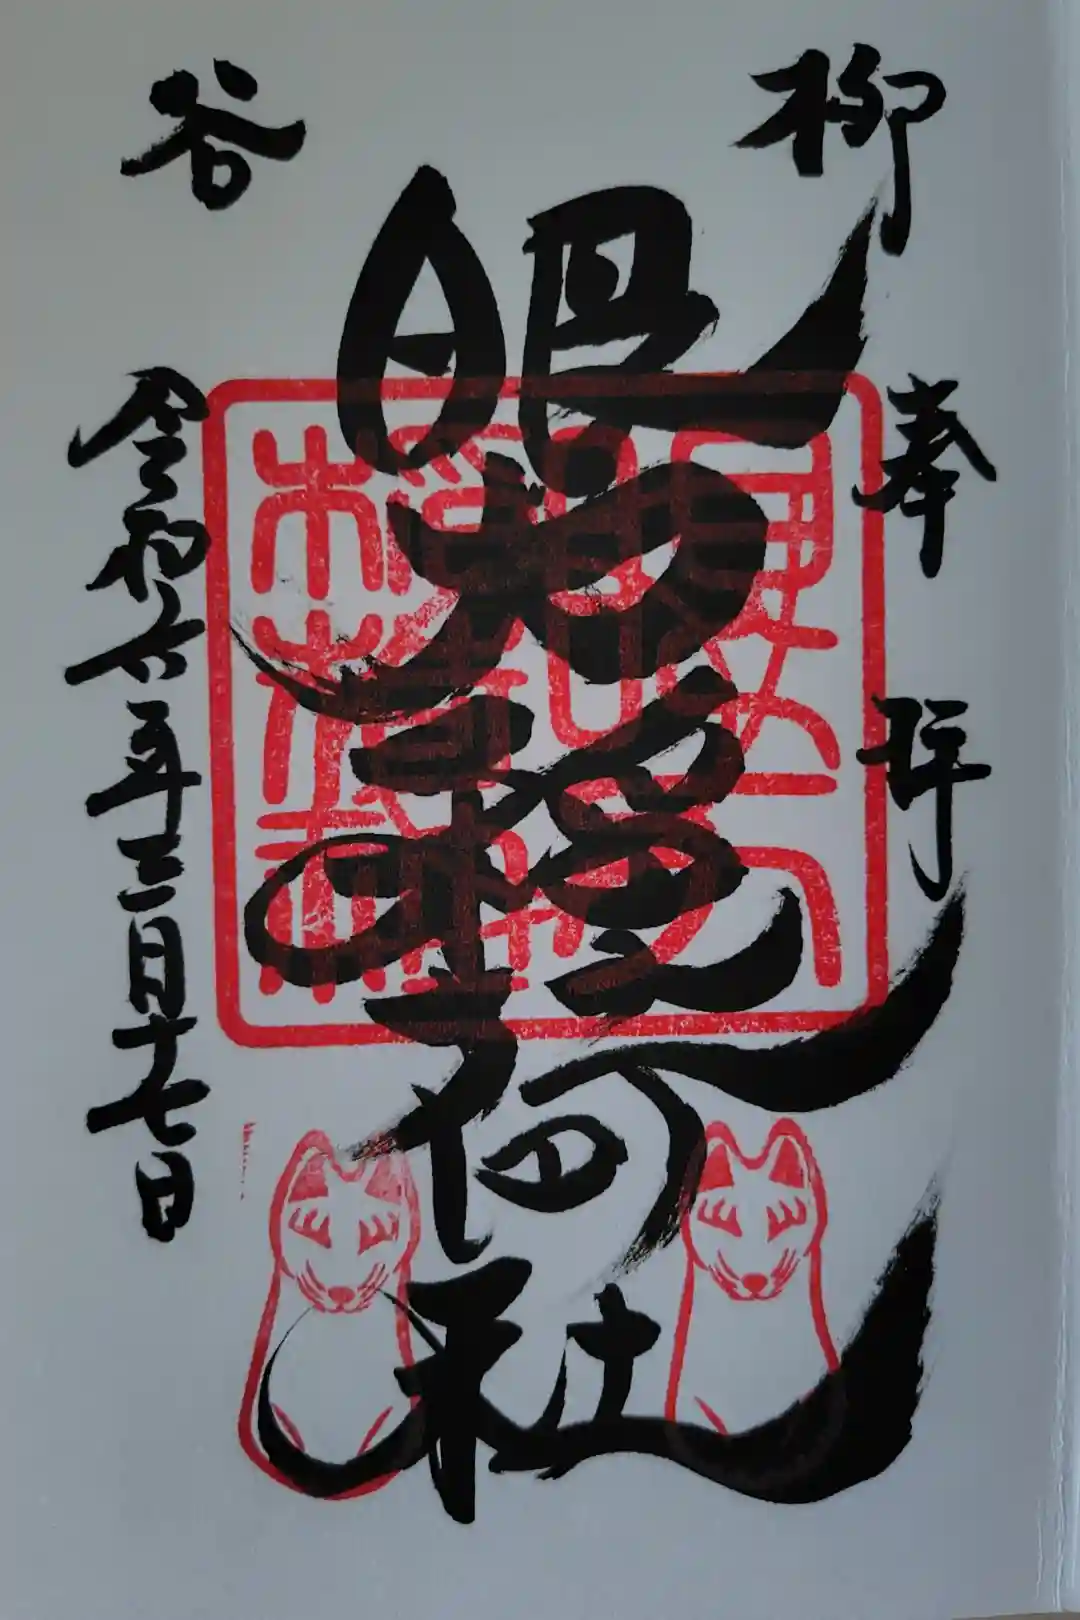 柳谷
奉拝
眼力稲荷社
令和六年三月十七日